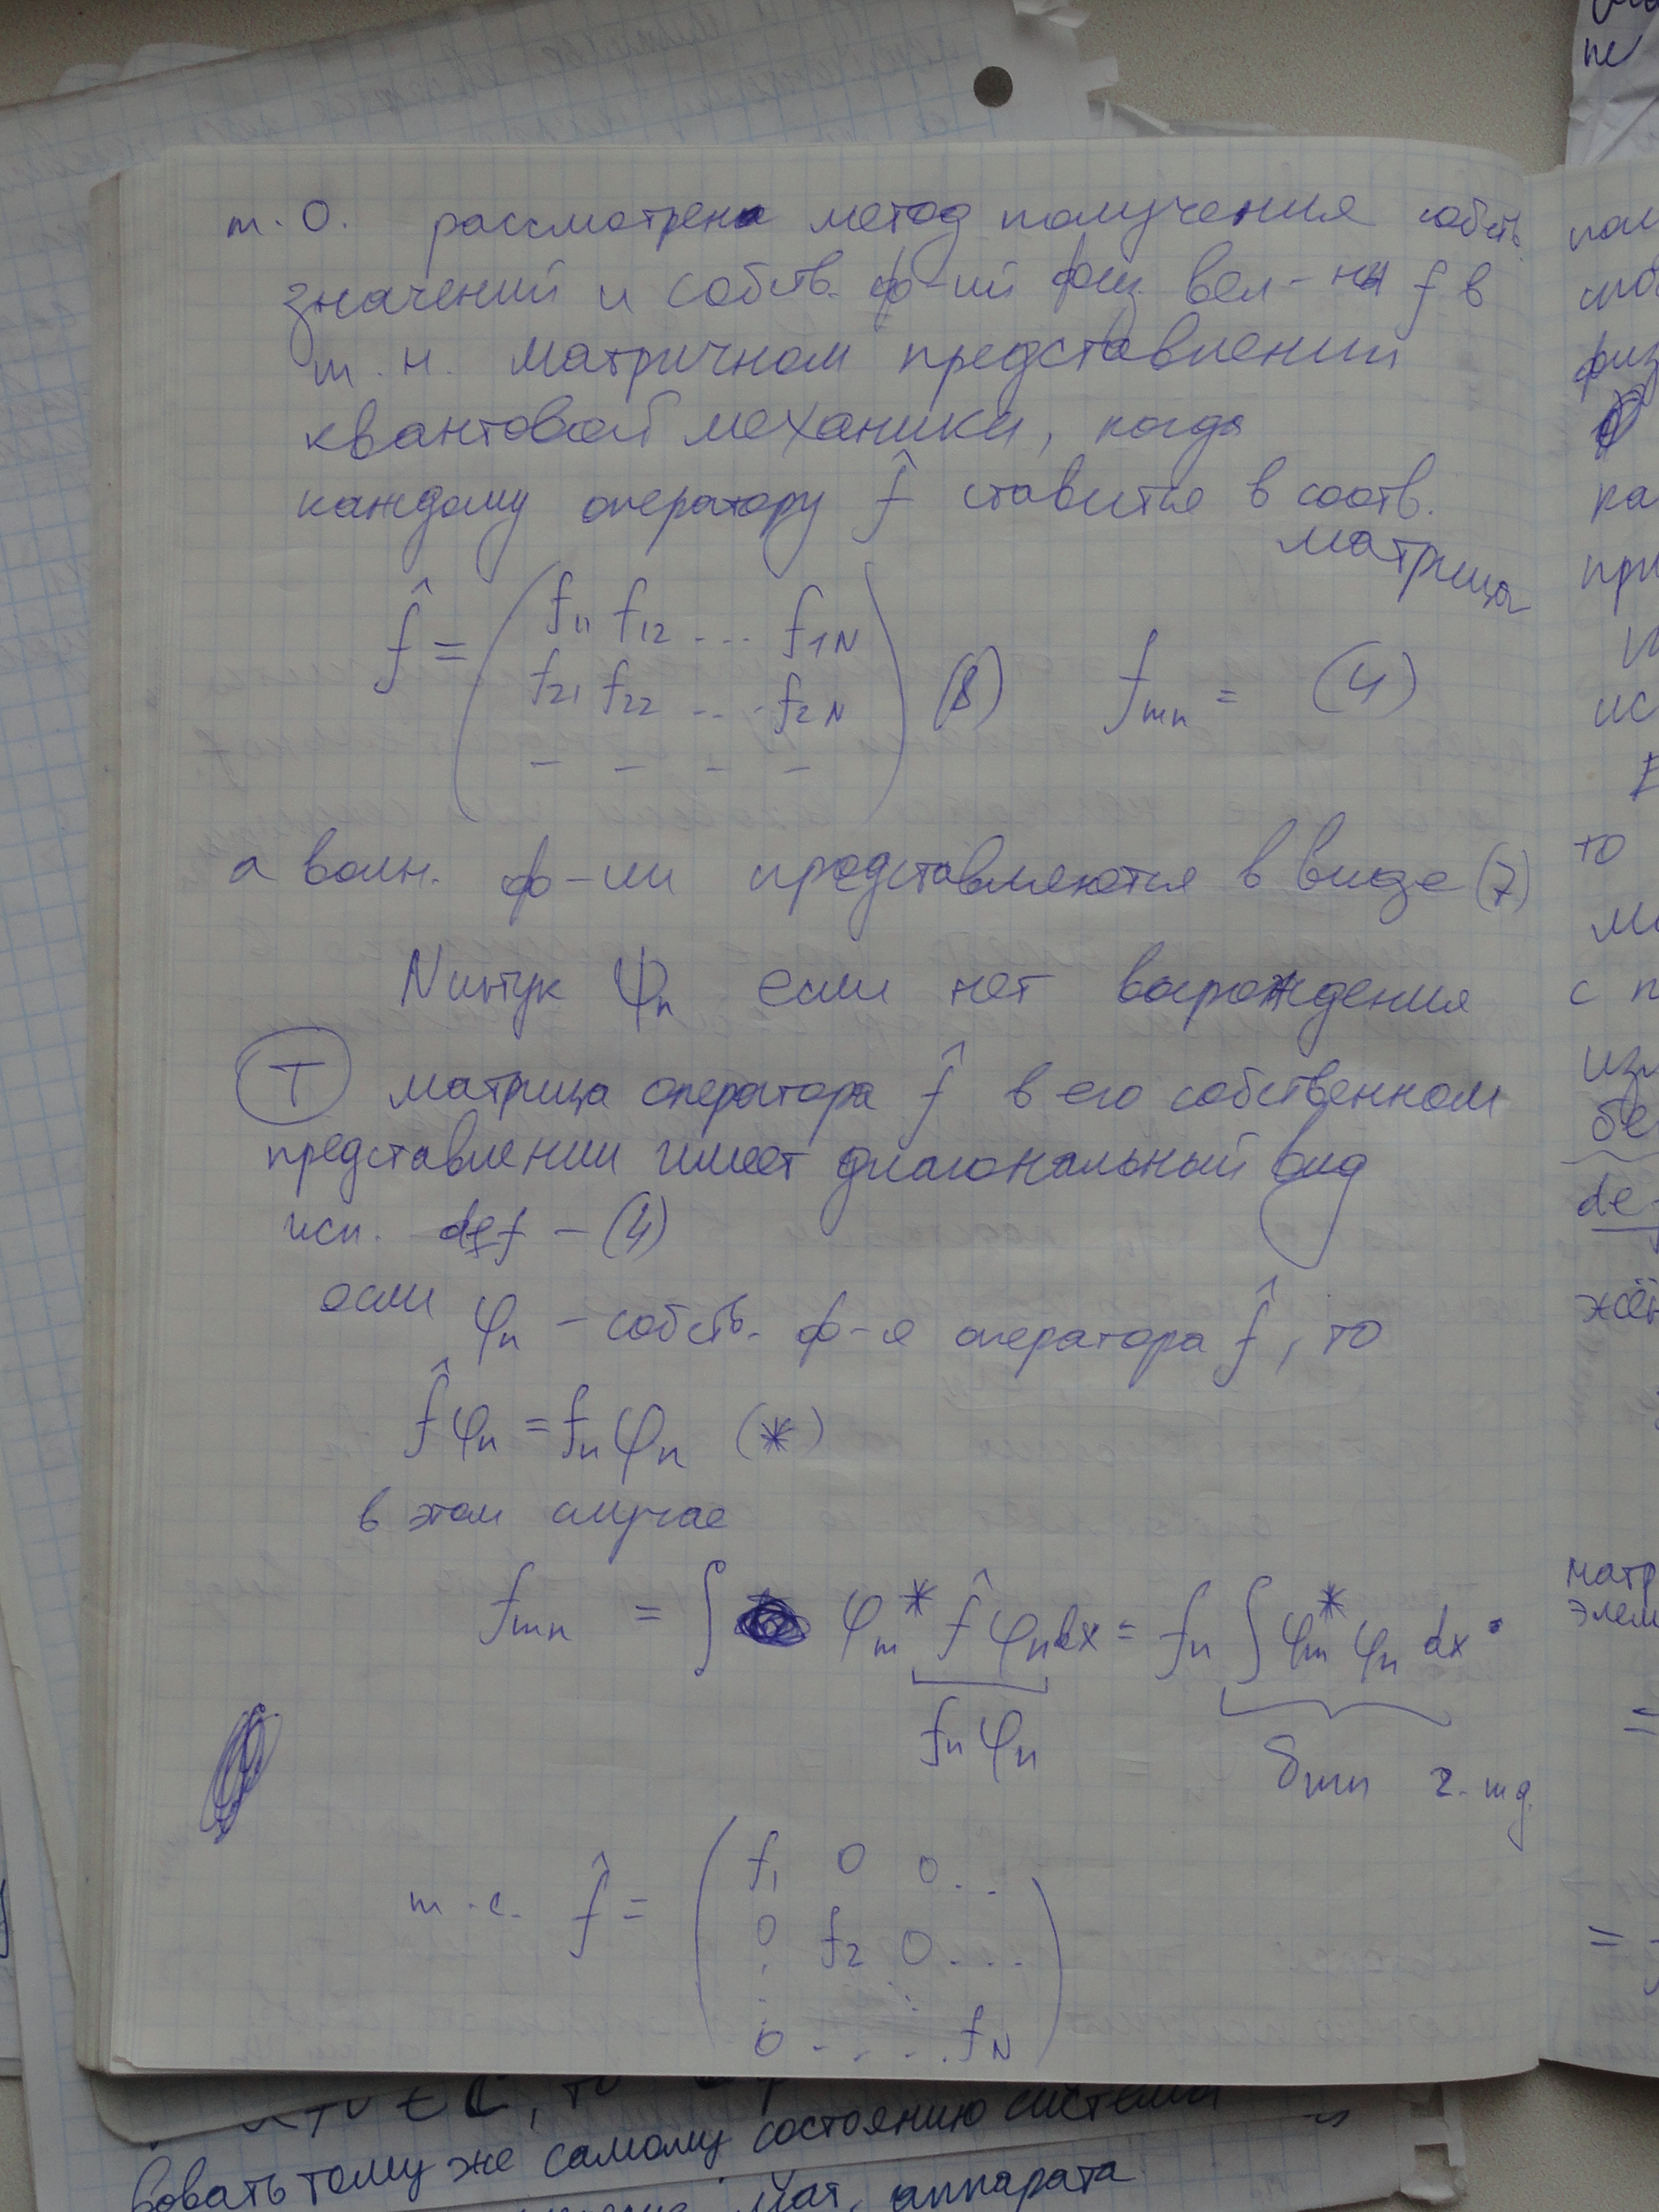 т.О. рассмотрен метод получения собств.
значений и собств. ф-ий физ. вел-ны f в
т.н. матричном представлении
квантовой механики, когда
каждому оператору f̂ ставится в соотв.
матрица
f̂ = ( f₁₁ f₁₂ ... f₁N
f₂₁ f₂₂ ... f₂N
– – – – ) (8) fmn = (4)
а волн. ф-ии представляются в виде (7)
N штук ψn если нет вырождения
Т матрица оператора f̂ в его собственном
представлении имеет диагональный вид
исп. def – (4)
если φn – собств. ф-я оператора f̂, то
f̂ φn = fn φn (*)
в этом случае
fmn = ∫ φm* f̂ φn dx = fn ∫ φm* φn dx
fn φn δmn ч.тд.
т.е. f̂ = ( f₁ 0 0 ..
0 f₂ 0 ...
0 ..... fN )
бовать тому же самому состоянию системы
мат. аппарата
пол
физ
ка
при
ис
то
с п
бе
def
матр
элем
=
=